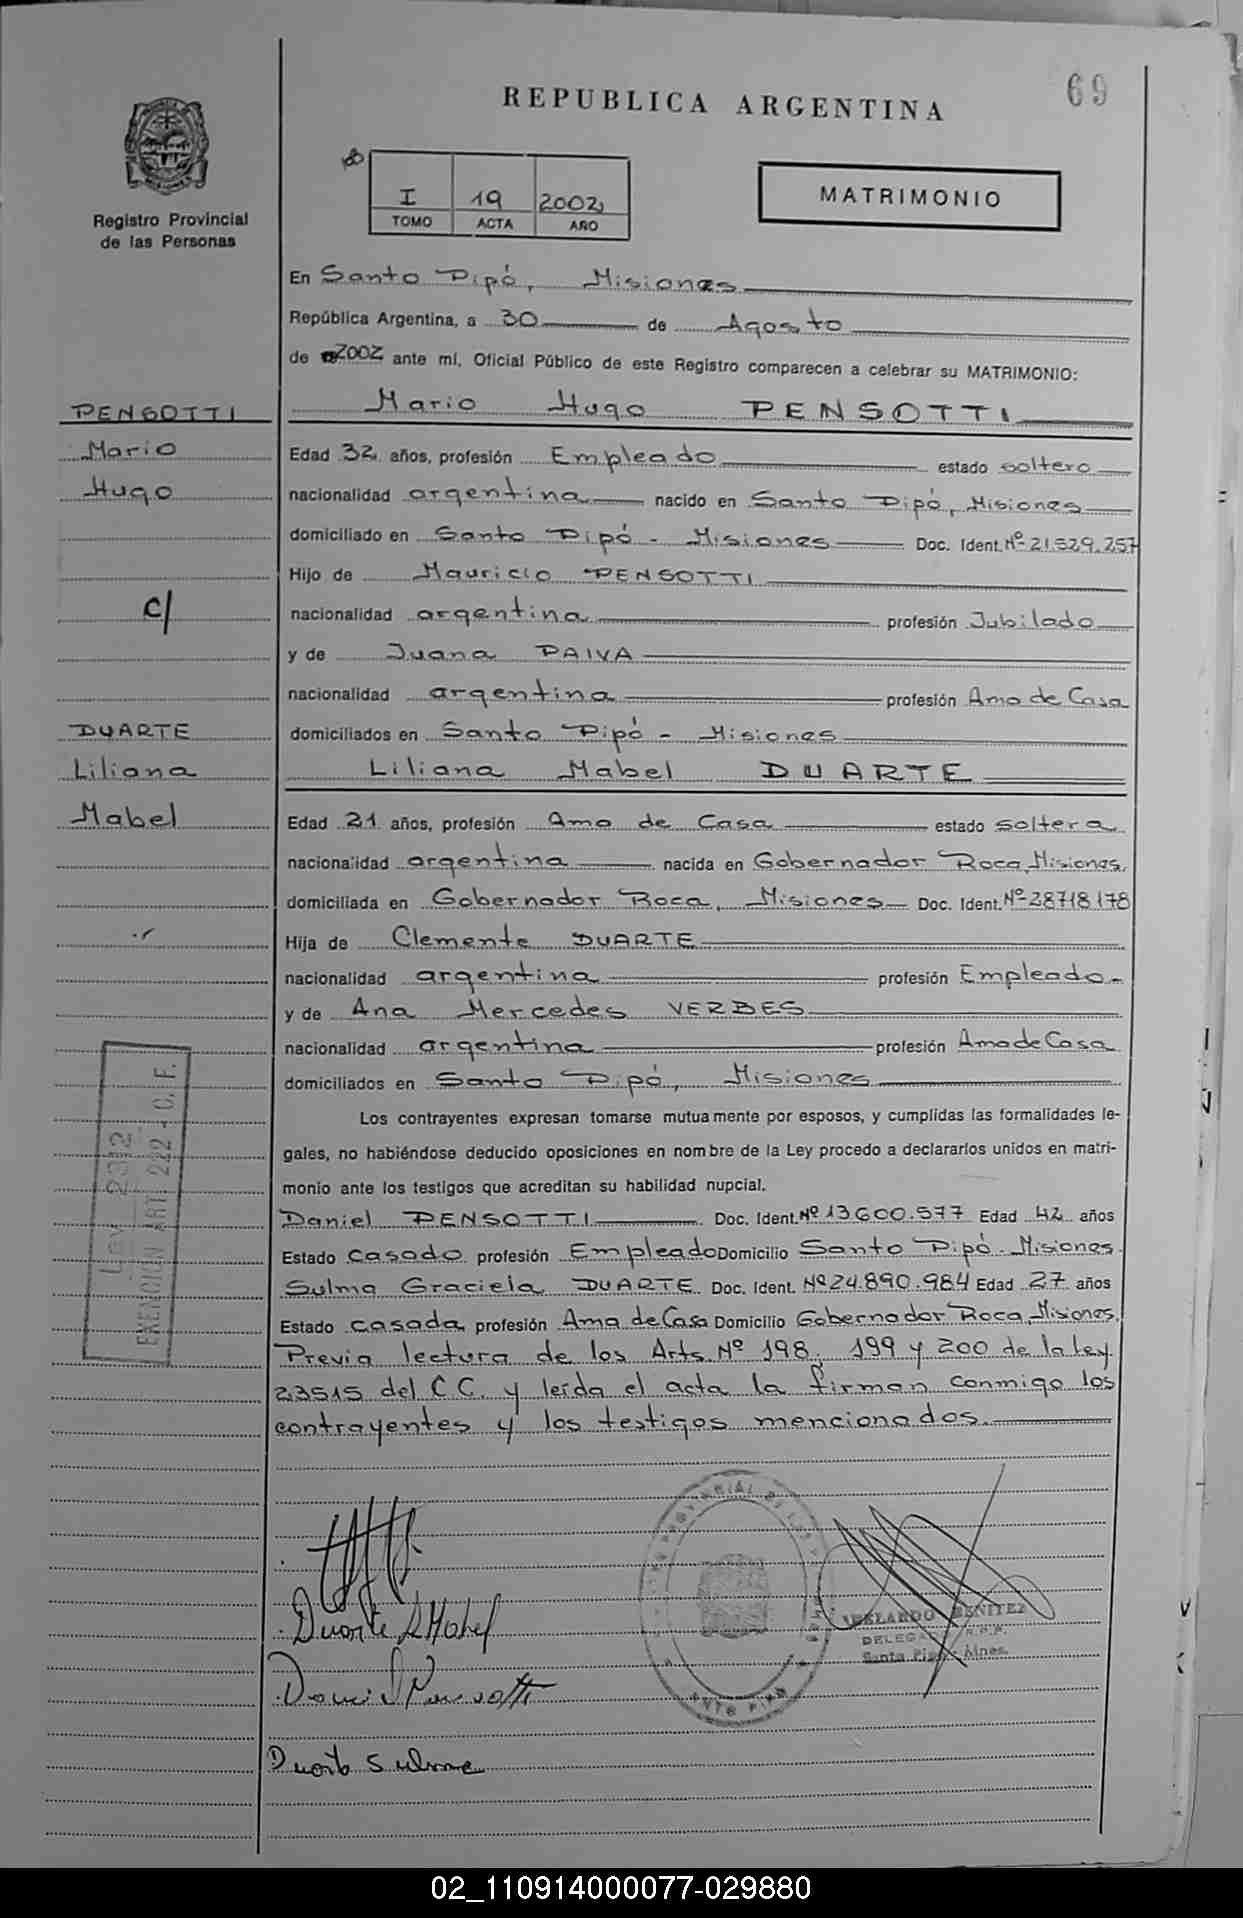 69
REPUBLICA ARGENTINA
I 19 2002
TOMO ACTA AÑO
MATRIMONIO
Registro Provincial
de las Personas
En Santo Pipó, Misiones
República Argentina, a 30 de Agosto
de 2002 ante mí, Oficial Público de este Registro comparecen a celebrar su MATRIMONIO:
PENSOTTI
Mario Hugo PENSOTTI
Mario
Edad 32 años, profesión Empleado estado soltero
Hugo
nacionalidad argentina nacido en Santo Pipó, Misiones
domiciliado en Santo Pipó - Misiones Doc. Ident. Nº 21.529.257
Hijo de Mauricio PENSOTTI
c/
nacionalidad argentina profesión Jubilado
y de Juana PAIVA
nacionalidad argentina profesión Ama de Casa
DUARTE
domiciliados en Santo Pipó - Misiones
Liliana
Liliana Mabel DUARTE
Mabel
Edad 21 años, profesión Ama de Casa estado soltera
nacionalidad argentina nacida en Gobernador Roca, Misiones.
domiciliada en Gobernador Roca, Misiones Doc. Ident. Nº 28718178
Hija de Clemente DUARTE
nacionalidad argentina profesión Empleado
y de Ana Mercedes VERBES
nacionalidad argentina profesión Ama de Casa
domiciliados en Santo Pipó, Misiones
Los contrayentes expresan tomarse mutuamente por esposos, y cumplidas las formalidades le-
gales, no habiéndose deducido oposiciones en nombre de la Ley procedo a declararlos unidos en matri-
monio ante los testigos que acreditan su habilidad nupcial.
Daniel PENSOTTI Doc. Ident. Nº 13.600.577 Edad 42 años
Estado casado profesión Empleado Domicilio Santo Pipó - Misiones.
Sulma Graciela DUARTE Doc. Ident. Nº 24.890.984 Edad 27 años
Estado casada profesión Ama de Casa Domicilio Gobernador Roca, Misiones.
Previa lectura de los Arts. Nº 198, 199 y 200 de la Ley
23515 del C.C. y leída el acta la firman conmigo los
contrayentes y los testigos mencionados.
LEY 2312
EXENCION ART 222 - C. F.
Duarte L Mabel
Daniel Pensotti
Duarte Sulma
BENITEZ
DELEGADO R.P.P.
Santo Pipó - Mnes.
SANTO PIPO
02_110914000077-029880